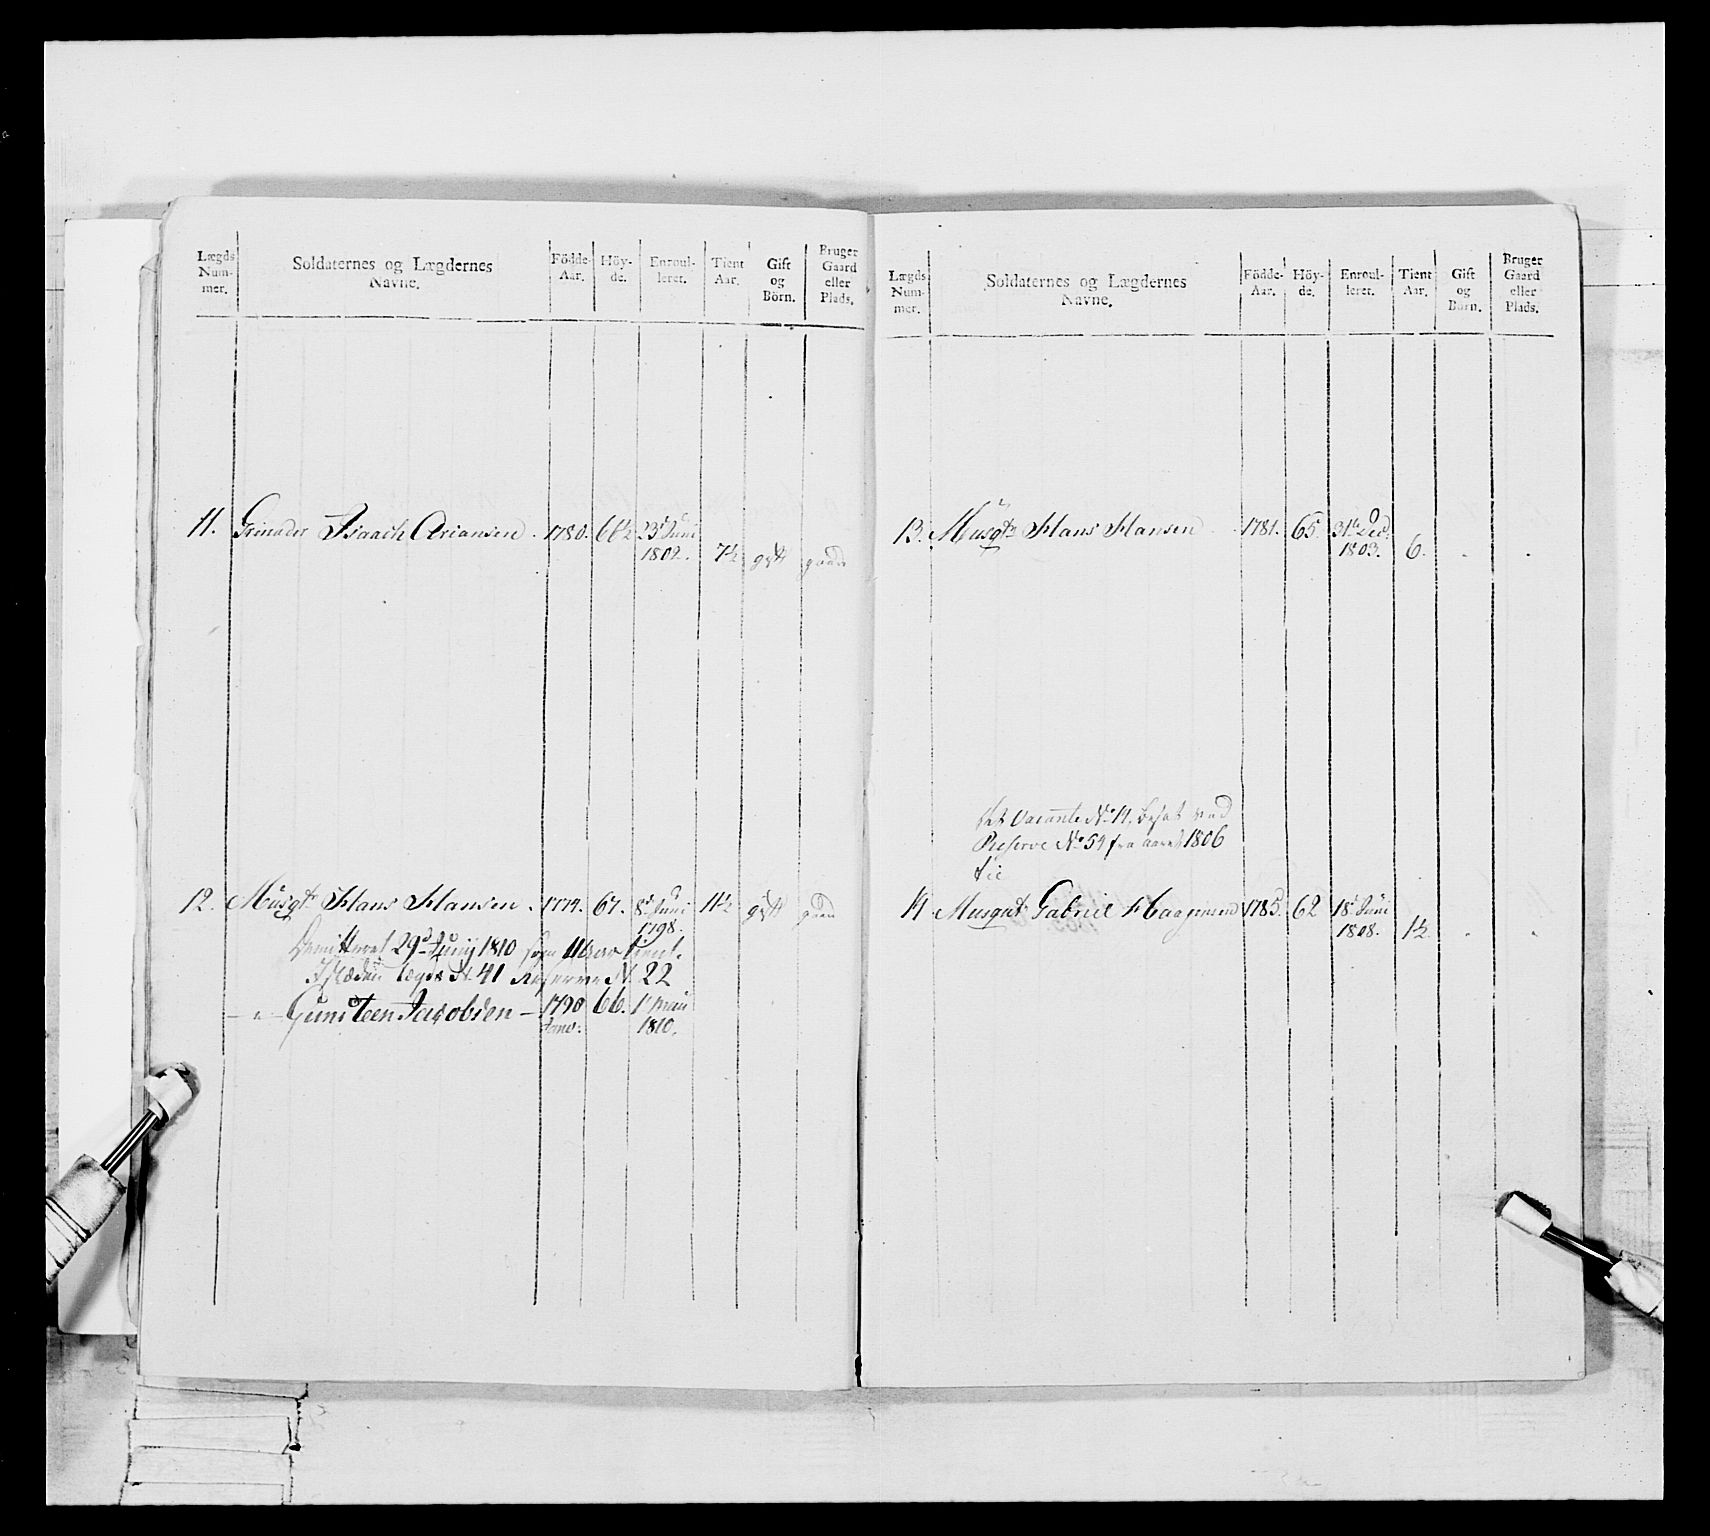 Lægds Num-mer. Soldaternes og Lægdernes Navne. Födde-Aar. Höy-de. Enroul-leret. Tient Aar. Gift og Börn. Bruger Gaard eller Plads.
11. Grinader Isaach Ariansen. 1780. 66½ 23d Juni
1802. 7½ gift gaard
12. Musqtr Hans Hansen. 1774. 67. 8d Juni 11½ gift gaard
1798.
Demitteret 29d Juny 1810 som 11 aar tient.
I stæden Lægds No 41 Reserve No 22
— " — Gunsteen Jacobsen — 1790 66. 1t Maii
1810.
Lægds Num-mer. Soldaternes og Lægdernes Navne. Födde-Aar. Höy-de. Enroul-leret. Tient Aar. Gift og Börn. Bruger Gaard eller Plads.
13. Musqtr Hans Hansen 1781. 65. 31te Dec:
1803. 6. . .
Det Vacante No 14, besat ved
Reserve No 54 fra aaret 1806
14 Musqut: Gabriel Haagensen 1785. 62 18d Juni
1808. 1½. . .